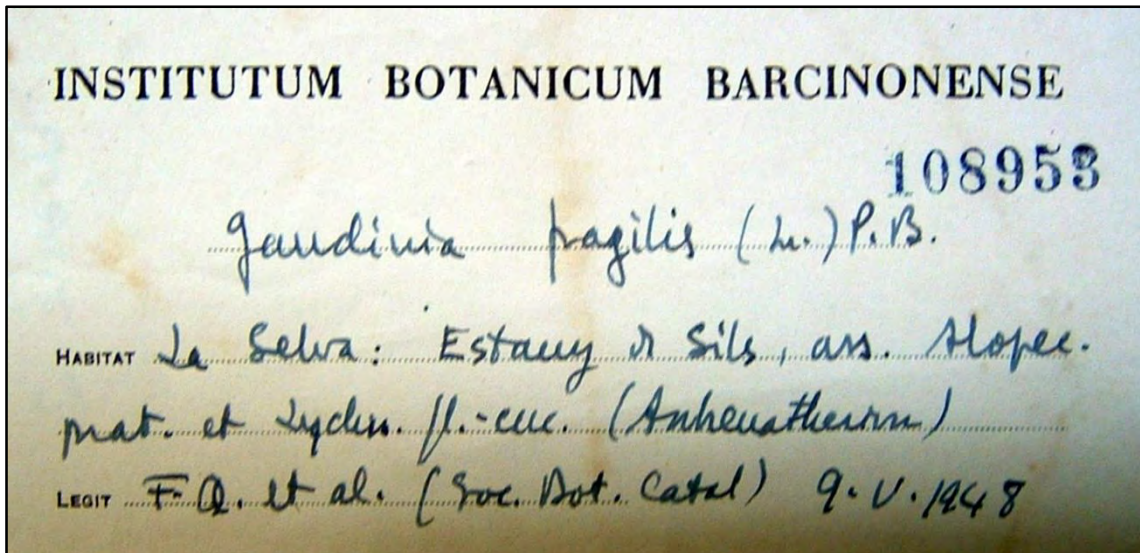 INSTITUTUM BOTANICUM BARCINONENSE
108953
Gaudinia fragilis (L.) P.B.
HABITAT La Selva: Estany de Sils, ass. Alopec.
prat. et Lychn. fl.-cuc. (Arrhenatherion)
LEGIT F.Q. et al. (Soc. Bot. Catal) 9.V.1948